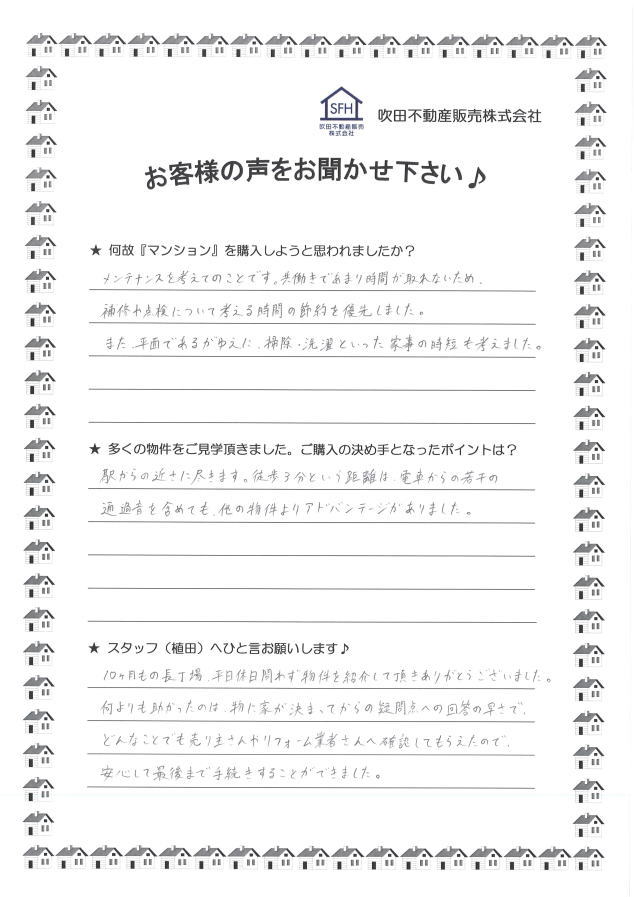 SFH
吹田不動産販売
株式会社
吹田不動産販売株式会社
お客様の声をお聞かせ下さい♪
★ 何故『マンション』を購入しようと思われましたか？
メンテナンスを考えてのことです。共働きであまり時間が取れないため、
補修や点検について考える時間の節約を優先しました。
また、平面であるがゆえに、掃除・洗濯といった家事の時短も考えました。
★ 多くの物件をご見学頂きました。ご購入の決め手となったポイントは？
駅からの近さに尽きます。徒歩3分という距離は、電車からの若干の
通過音を含めても、他の物件よりアドバンテージがありました。
★ スタッフ（植田）へひと言お願いします♪
10ヶ月もの長丁場、平日休日問わず物件を紹介して頂きありがとうございました。
何よりも助かったのは、特に家が決まってからの疑問点への回答の早さで、
どんなことでも売り主さんやリフォーム業者さんへ確認してもらえたので、
安心して最後まで手続きすることができました。